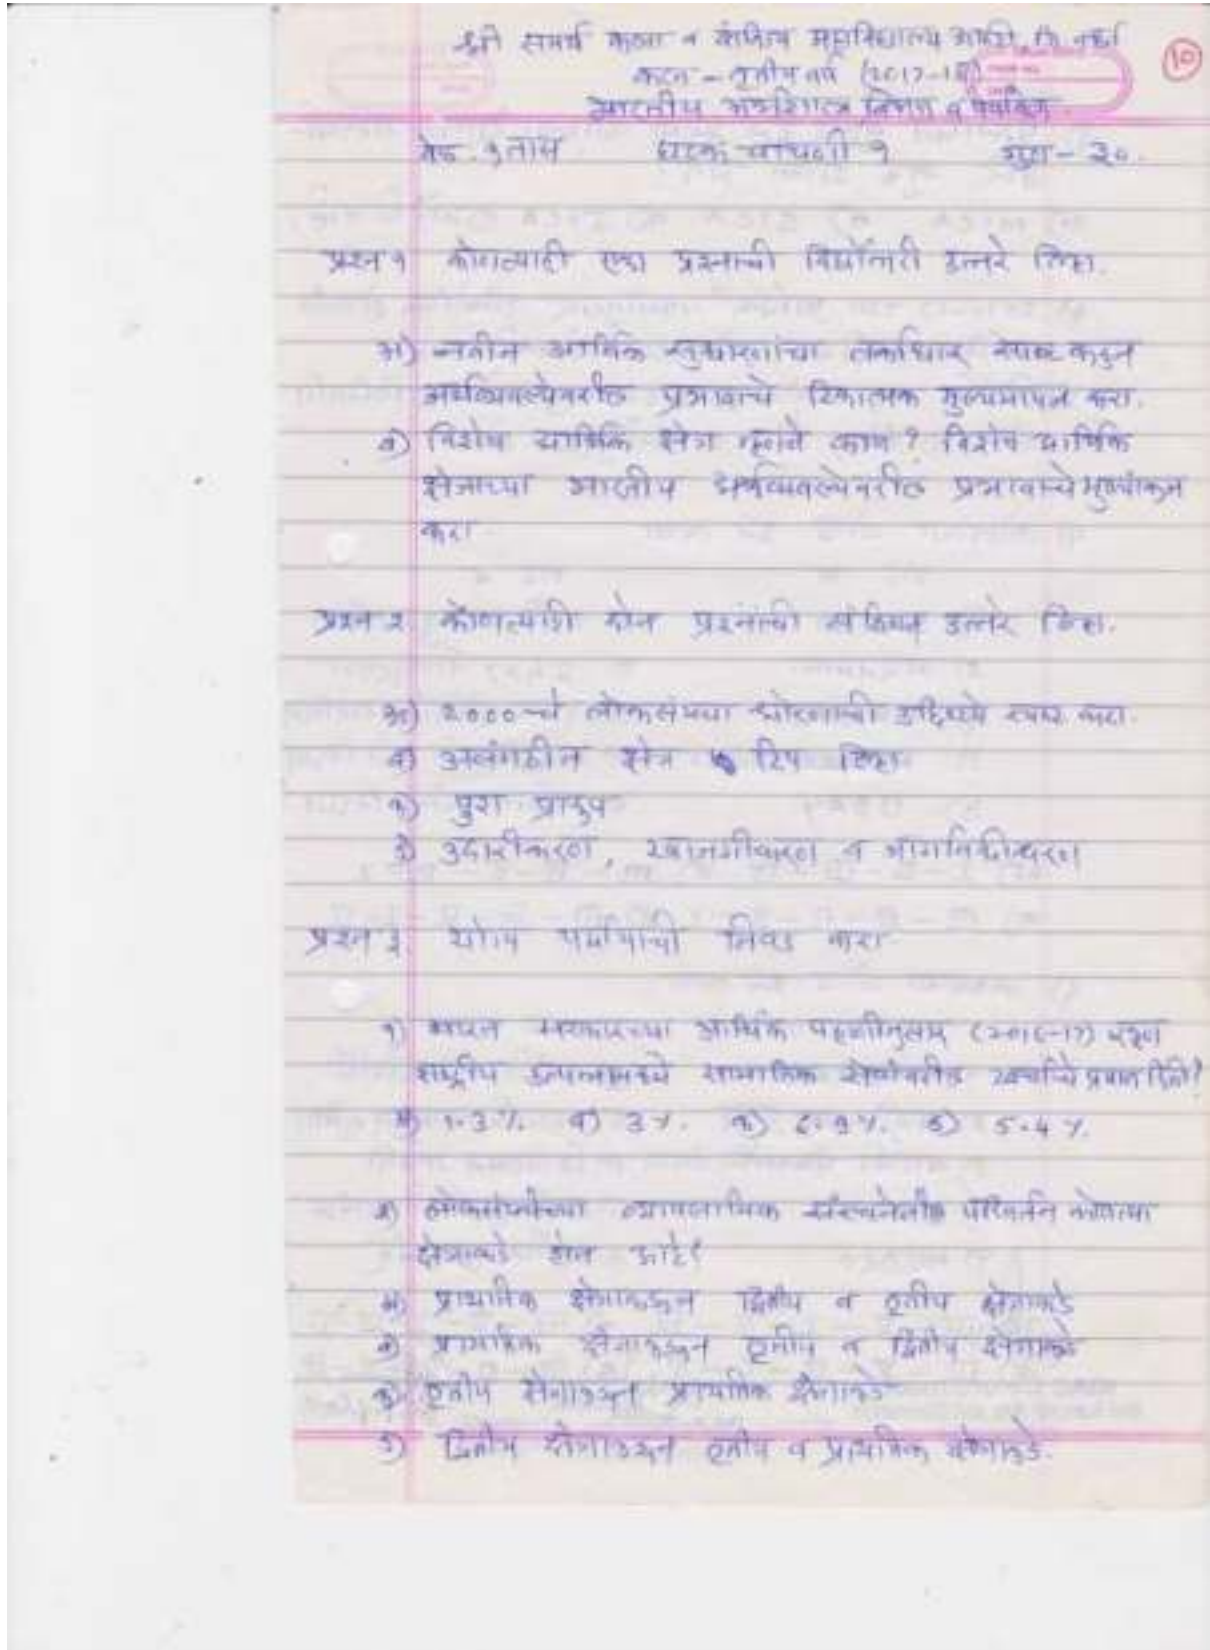 श्री समर्थ कला व वाणिज्य महाविद्यालय
कला - तृतीय वर्ष (2017-18)
भारतीय अर्थशास्त्र विकास व पर्यावरण
वेळ. १ तास घटक चाचणी १ गुण - २०.
10
प्रश्न १ कोणत्याही एका प्रश्नाची दिर्घोत्तरी उत्तरे लिहा.
अ) नवीन आर्थिक सुधारणांचा तर्काधार स्पष्ट करुन
अर्थव्यवस्थेवरील प्रभावाचे टिकात्मक मुल्यमापन करा.
ब) विशेष आर्थिक क्षेत्र म्हणजे काय? विशेष आर्थिक
क्षेत्राच्या भारतीय अर्थव्यवस्थेवरील प्रभावाचे मुल्यांकन
करा
प्रश्न २ कोणत्याही दोन प्रश्नांची संक्षिप्त उत्तरे लिहा.
अ) 2000 चे लोकसंख्या धोरणाची उद्दिष्ट्ये स्पष्ट करा.
ब) असंगठीत क्षेत्र टिप लिहा
क) पुरा प्रारुप
ड) उदारीकरण, खाजगीकरण व जागतिकीकरण
प्रश्न ३ योग्य पर्यायाची निवड करा
१) भारत सरकारच्या आर्थिक पाहणीनुसार (2016-17)
राष्ट्रीय उत्पन्नामध्ये सामाजिक सेवांवरील खर्चाचे प्रमाण किती?
अ) 1.3 %. ब) 3 %. क) 6.9 %. ड) 5.4 %.
२) लोकसंख्येच्या व्यावसायिक संरचनेतील परिवर्तन कोणत्या
क्षेत्राकडे होत आहे?
अ) प्राथमिक क्षेत्राकडून द्वितीय व तृतीय क्षेत्राकडे
ब) प्राथमिक क्षेत्राकडून तृतीय व द्वितीय क्षेत्राकडे
क) तृतीय क्षेत्राकडून प्राथमिक क्षेत्राकडे
ड) द्वितीय क्षेत्राकडून तृतीय व प्राथमिक क्षेत्राकडे.